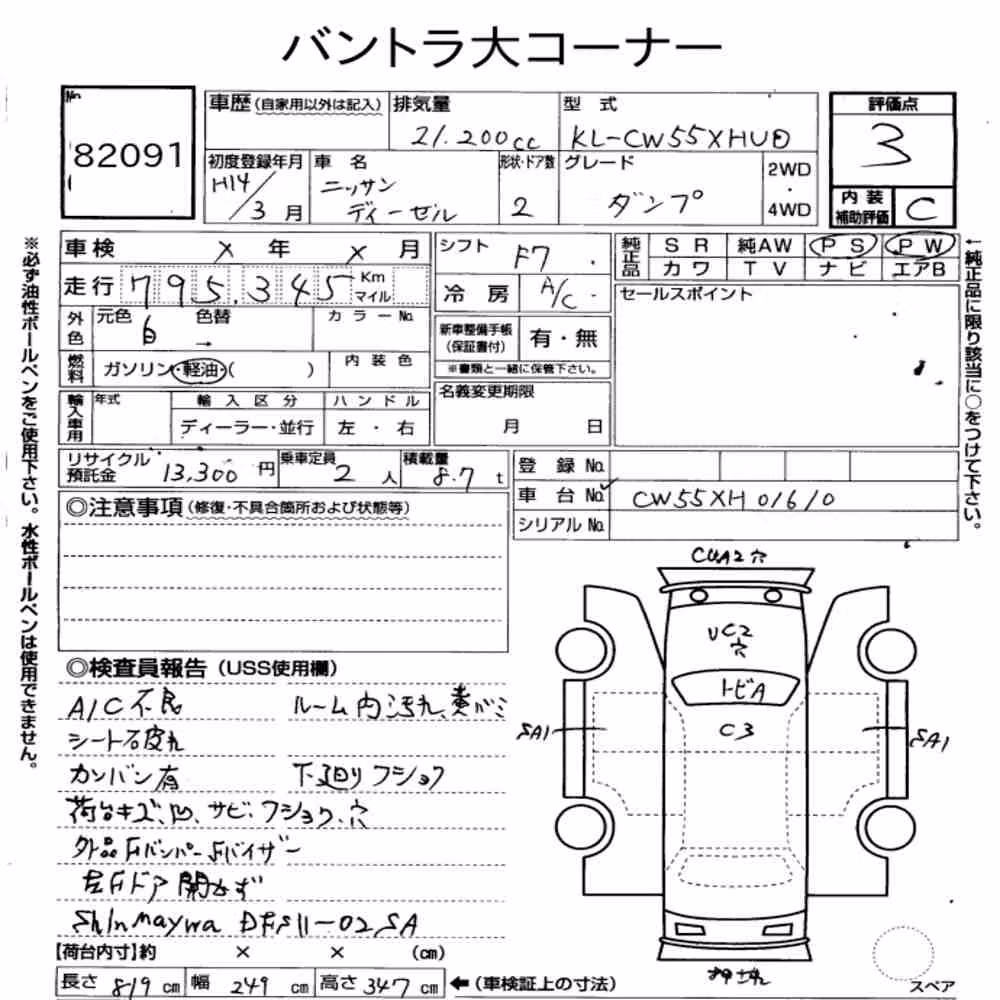 バントラ大コーナー
No
82091
車歴(自家用以外は記入) 排気量 21.200cc 型式 KL-CW55XHUD
初度登録年月 H14/3月 車名 ニッサン ディーゼル 形状・ドア数 2 グレード ダンプ 2WD・4WD
評価点 3
内装補助評価 C
車検 × 年 × 月
走行 795.345 Km マイル
外色 元色 白 色替 → カラーNo.
燃料 ガソリン・軽油・( ) 内装色
輸入車用 年式 輸入区分 ディーラー・並行 ハンドル 左・右
シフト F7
冷房 A/C
新車整備手帳(保証書付) 有・無
※書類と一緒に保管下さい。
名義変更期限 月 日
純正品 SR 純AW PS PW
カワ TV ナビ エアB
セールスポイント
リサイクル預託金 13,300円 乗車定員 2人 積載量 8.7t
登録No.
車台No. CW55XH 01610
シリアルNo.
◎注意事項(修復・不具合箇所および状態等)
◎検査員報告(USS使用欄)
A/C不良 ルーム内汚れ、
シート破れ
カンバン有 下廻りフショク
荷台キズ、凹、サビ、フショク、穴
外品Fバンパー、Fバイザー
左Fドア開かず
ShinMaywa DFS11-02SA
【荷台内寸】約 × × (cm)
長さ 819 cm 幅 249 cm 高さ 347 cm ←(車検証上の寸法)
CUA2 穴
UC2
穴
トビA
C3
SA1
SA1
スペア
※必ず油性ボールペンをご使用下さい。水性ボールペンは使用できません。
←純正品に限り該当に○をつけて下さい。